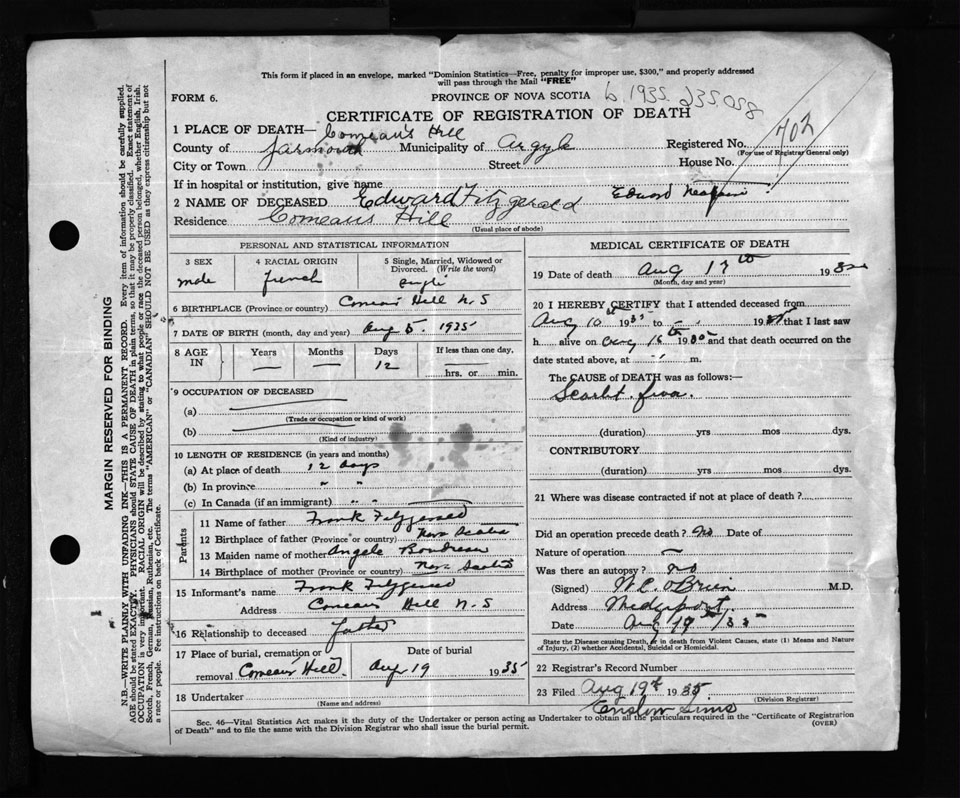 This form if placed in an envelope, marked "Dominion Statistics—Free, penalty for improper use, $300," and properly addressed
will pass through the Mail "FREE"
FORM 6. PROVINCE OF NOVA SCOTIA b. 1935. 235.058
CERTIFICATE OF REGISTRATION OF DEATH
702
1 PLACE OF DEATH— Comeau's Hill
County of Yarmouth Municipality of Argyle Registered No.
(For use of Registrar General only)
City or Town Street House No.
If in hospital or institution, give name
2 NAME OF DECEASED Edward Fitzgerald Edward
Residence Comeaus Hill
(Usual place of abode)
PERSONAL AND STATISTICAL INFORMATION
3 SEX 4 RACIAL ORIGIN 5 Single, Married, Widowed or
Divorced. (Write the word)
male french single
6 BIRTHPLACE (Province or country) Comeau Hill N.S
7 DATE OF BIRTH (month, day and year) Aug 5. 1935
8 AGE IN Years Months Days If less than one day,
— — 12 hrs. or min.
9 OCCUPATION OF DECEASED
(a)
(Trade or occupation or kind of work)
(b)
(Kind of industry)
10 LENGTH OF RESIDENCE (in years and months)
(a) At place of death 12 days
(b) In province " "
(c) In Canada (if an immigrant) " "
Parents
11 Name of father Frank Fitzgerald
12 Birthplace of father (Province or country) Nova Scotia
13 Maiden name of mother Angele Boudreau
14 Birthplace of mother (Province or country) Nova Scotia
15 Informant's name Frank Fitzgerald
Address Comeau Hill N.S
16 Relationship to deceased father
17 Place of burial, cremation or Date of burial
removal Comeau Hill. Aug 19 1935
18 Undertaker
(Name and address)
MEDICAL CERTIFICATE OF DEATH
19 Date of death Aug 17th 193
(Month, day and year)
20 I HEREBY CERTIFY that I attended deceased from
Aug 10th 1935 to 19 that I last saw
h alive on Aug 16th 1935 and that death occurred on the
date stated above, at m.
The CAUSE of DEATH was as follows:—
Scarlet
(duration) yrs mos dys.
CONTRIBUTORY
(duration) yrs mos dys.
21 Where was disease contracted if not at place of death?
Did an operation precede death? No Date of
Nature of operation —
Was there an autopsy? no
(Signed) W.C. O'Brien M.D.
Address Wedgeport.
Date Aug 19th/35
State the Disease causing Death, or in death from Violent Causes, state (1) Means and Nature
of Injury, (2) whether Accidental, Suicidal or Homicidal.
22 Registrar's Record Number
23 Filed Aug 19th 1935.
(Division Registrar)
Enslow Sims
Sec. 46—Vital Statistics Act makes it the duty of the Undertaker or person acting as Undertaker to obtain all the particulars required in the "Certificate of Registration
of Death" and to file the same with the Division Registrar who shall issue the burial permit. (OVER)
MARGIN RESERVED FOR BINDING
N.B.—WRITE PLAINLY WITH UNFADING INK—THIS IS A PERMANENT RECORD. Every item of information should be carefully supplied.
AGE should be stated EXACTLY. PHYSICIANS should STATE CAUSE OF DEATH in plain terms, so that it may be properly classified. Exact statement of
OCCUPATION is very important. RACIAL ORIGIN will be described by stating to what people or race the deceased person belonged, whether English, Irish,
Scotch, French, German, Russian, Ruthenian, etc. The terms "AMERICAN" or "CANADIAN" SHOULD NOT BE USED as they express citizenship but not
a race or people. Fee instructions on back of Certificate.